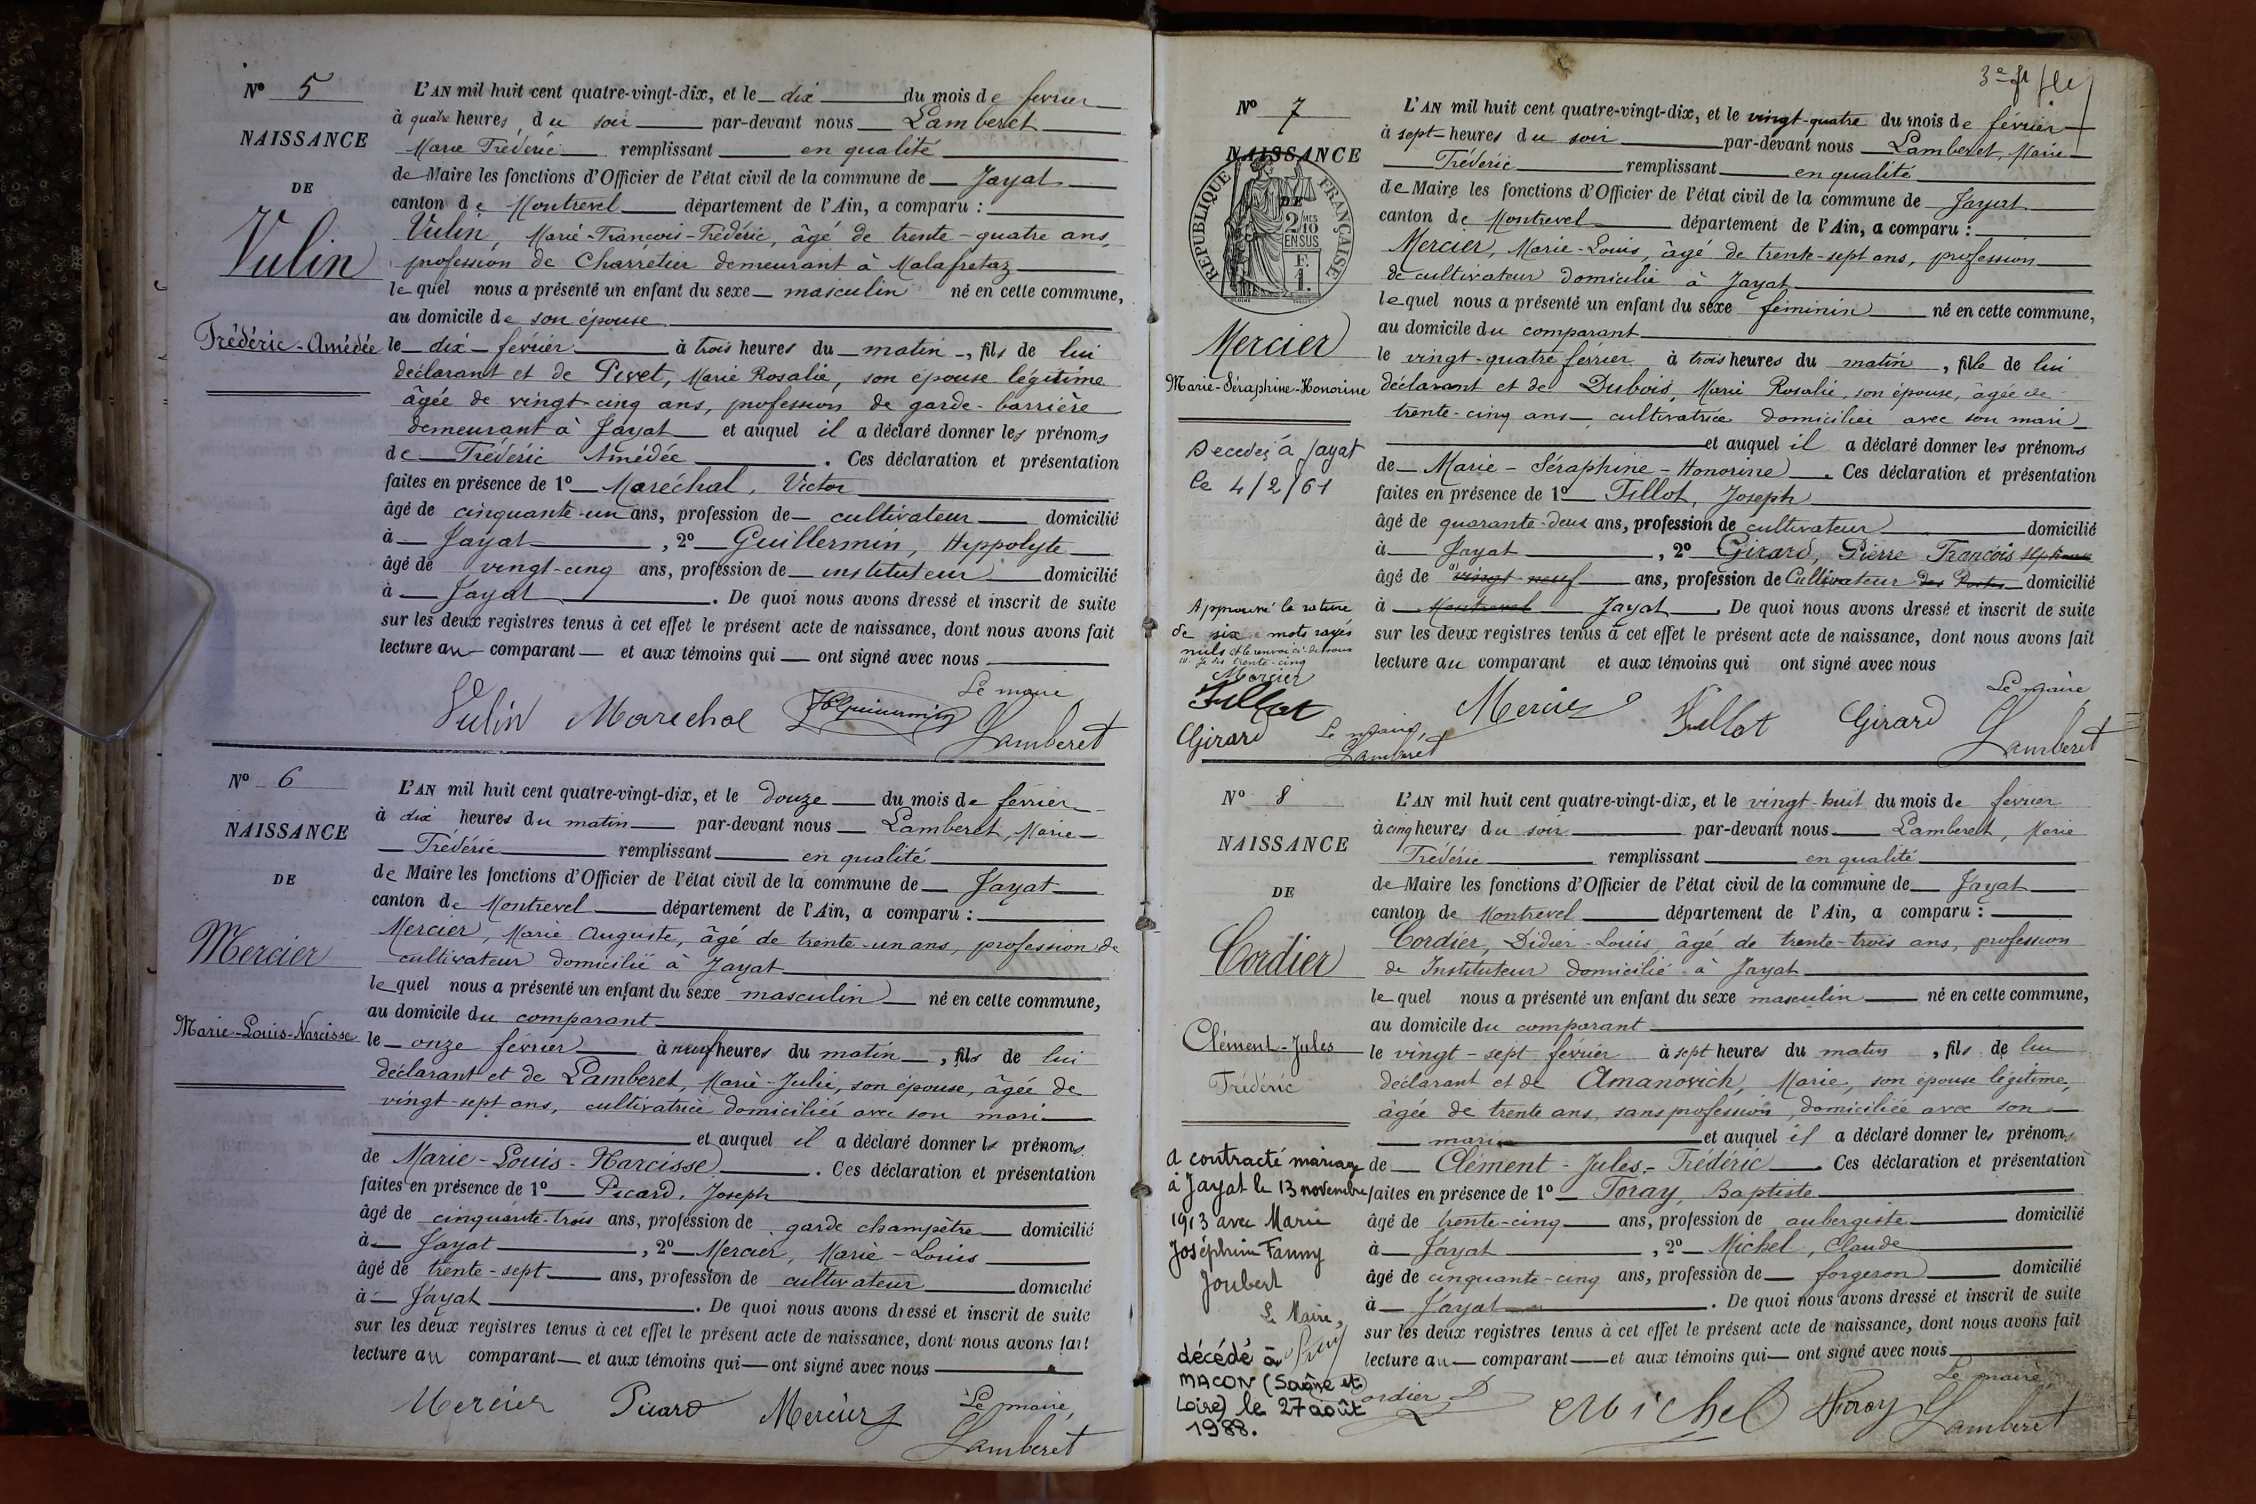 Nº 5
NAISSANCE
DE
Vulin
Frédéric-Amédée
L'AN mil huit cent quatre-vingt-dix, et le dix du mois de février
à quatre heures du soir par-devant nous Lamberet
Marie Frédéric remplissant en qualité
de Maire les fonctions d'Officier de l'état civil de la commune de Jayat
canton de Montrevel département de l'Ain, a comparu :
Vulin, Marie-François-Frédéric, âgé de trente-quatre ans,
profession de Charretier demeurant à Malafretaz
lequel nous a présenté un enfant du sexe masculin né en cette commune,
au domicile de son épouse
le dix février à trois heures du matin, fils de lui
déclarant et de Pivet, Marie Rosalie, son épouse légitime
âgée de vingt-cinq ans, profession de garde-barrière
demeurant à Jayat et auquel il a déclaré donner les prénoms
de Frédéric Amédée. Ces déclaration et présentation
faites en présence de 1º Maréchal, Victor
âgé de cinquante-un ans, profession de cultivateur domicilié
à Jayat, 2º Guillermin, Hyppolyte
âgé de vingt-cinq ans, profession de instituteur domicilié
à Jayat. De quoi nous avons dressé et inscrit de suite
sur les deux registres tenus à cet effet le présent acte de naissance, dont nous avons fait
lecture au comparant et aux témoins qui ont signé avec nous
Le maire
Vulin Marechal Guillermin Lamberet
Nº 6
NAISSANCE
DE
Mercier
Marie-Louis-Narcisse
L'AN mil huit cent quatre-vingt-dix, et le douze du mois de février
à dix heures du matin par-devant nous Lamberet, Marie
Frédéric remplissant en qualité
de Maire les fonctions d'Officier de l'état civil de la commune de Jayat
canton de Montrevel département de l'Ain, a comparu :
Mercier, Marie Auguste, âgé de trente-un ans, profession de
cultivateur domicilié à Jayat
lequel nous a présenté un enfant du sexe masculin né en cette commune,
au domicile du comparant
le onze février à neuf heures du matin, fils de lui
déclarant et de Lamberet, Marie-Julie, son épouse, âgée de
vingt-sept ans, cultivatrice domiciliée avec son mari
et auquel il a déclaré donner les prénoms
de Marie-Louis-Narcisse. Ces déclaration et présentation
faites en présence de 1º Picard, Joseph
âgé de cinquante-trois ans, profession de garde champêtre domicilié
à Jayat, 2º Mercier, Marie-Louis
âgé de trente-sept ans, profession de cultivateur domicilié
à Jayat. De quoi nous avons dressé et inscrit de suite
sur les deux registres tenus à cet effet le présent acte de naissance, dont nous avons fait
lecture au comparant et aux témoins qui ont signé avec nous
Le maire,
Mercier Picard Mercier Lamberet
Nº 7
NAISSANCE
DE
RÉPUBLIQUE FRANÇAISE
2/10
EN SUS
F.
1.
Mercier
Marie-Séraphine-Honorine
Decedée à Jayat
le 4/2/61
Approuvé la rature
de six mots rayés
nuls et le renvoi ci-dessous
trente-cinq
Mercier
Fillot
Girard Le maire,
Lamberet
L'AN mil huit cent quatre-vingt-dix, et le vingt-quatre du mois de février
à sept heures du soir par-devant nous Lamberet, Marie
Frédéric remplissant en qualité
de Maire les fonctions d'Officier de l'état civil de la commune de Jayat
canton de Montrevel département de l'Ain, a comparu :
Mercier, Marie-Louis, âgé de trente-sept ans, profession
de cultivateur domicilié à Jayat
lequel nous a présenté un enfant du sexe féminin né en cette commune,
au domicile du comparant
le vingt-quatre février à trois heures du matin, fille de lui
déclarant et de Dubois, Marie Rosalie, son épouse, âgée de
trente-cinq ans, cultivatrice domiciliée avec son mari
et auquel il a déclaré donner les prénoms
de Marie-Séraphine-Honorine. Ces déclaration et présentation
faites en présence de 1º Fillot, Joseph
âgé de quarante-deux ans, profession de cultivateur domicilié
à Jayat, 2º Girard, Pierre François
âgé de vingt-neuf ans, profession de Cultivateur des Postes domicilié
à Montrevel Jayat. De quoi nous avons dressé et inscrit de suite
sur les deux registres tenus à cet effet le présent acte de naissance, dont nous avons fait
lecture au comparant et aux témoins qui ont signé avec nous
Le maire
Mercier Fillot Girard Lamberet
Nº 8
NAISSANCE
DE
Cordier
Clément-Jules
Frédéric
a contracté mariage
à Jayat le 13 novembre
1913 avec Marie
Joséphine Fanny
Joubert
Le Maire,
décédé à
MACON (Saône et
Loire) le 27 août
1988.
L'AN mil huit cent quatre-vingt-dix, et le vingt-huit du mois de février
à cinq heures du soir par-devant nous Lamberet, Marie
Frédéric remplissant en qualité
de Maire les fonctions d'Officier de l'état civil de la commune de Jayat
canton de Montrevel département de l'Ain, a comparu :
Cordier, Didier-Louis, âgé de trente-trois ans, profession
de Instituteur domicilié à Jayat
lequel nous a présenté un enfant du sexe masculin né en cette commune,
au domicile du comparant
le vingt-sept février à sept heures du matin, fils de lui
déclarant et de Amanovich, Marie, son épouse légitime,
âgée de trente ans, sans profession, domiciliée avec son
mari et auquel il a déclaré donner les prénoms
de Clément-Jules-Frédéric. Ces déclaration et présentation
faites en présence de 1º Foray, Baptiste
âgé de trente-cinq ans, profession de aubergiste domicilié
à Jayat, 2º Michel, Claude
âgé de cinquante-cinq ans, profession de forgeron domicilié
à Jayat. De quoi nous avons dressé et inscrit de suite
sur les deux registres tenus à cet effet le présent acte de naissance, dont nous avons fait
lecture au comparant et aux témoins qui ont signé avec nous
Le maire,
Cordier D Michel Foray Lamberet